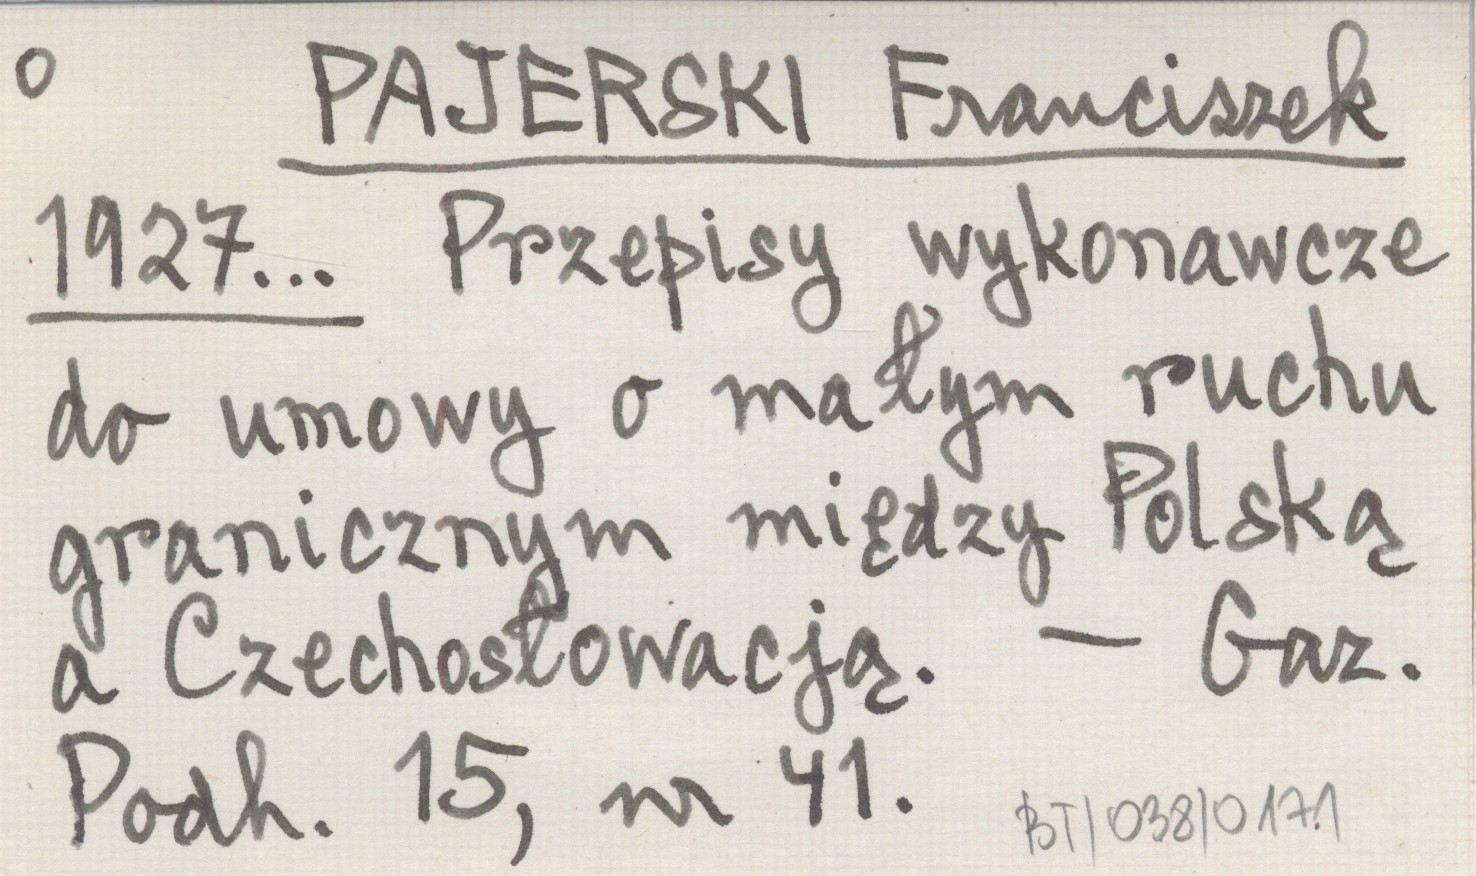 o PAJERSKI Franciszek
1927... Przepisy wykonawcze
do umowy o małym ruchu
granicznym między Polską
a Czechosłowacją. — Gaz.
Podh. 15, nr 41.
BT/038/0171